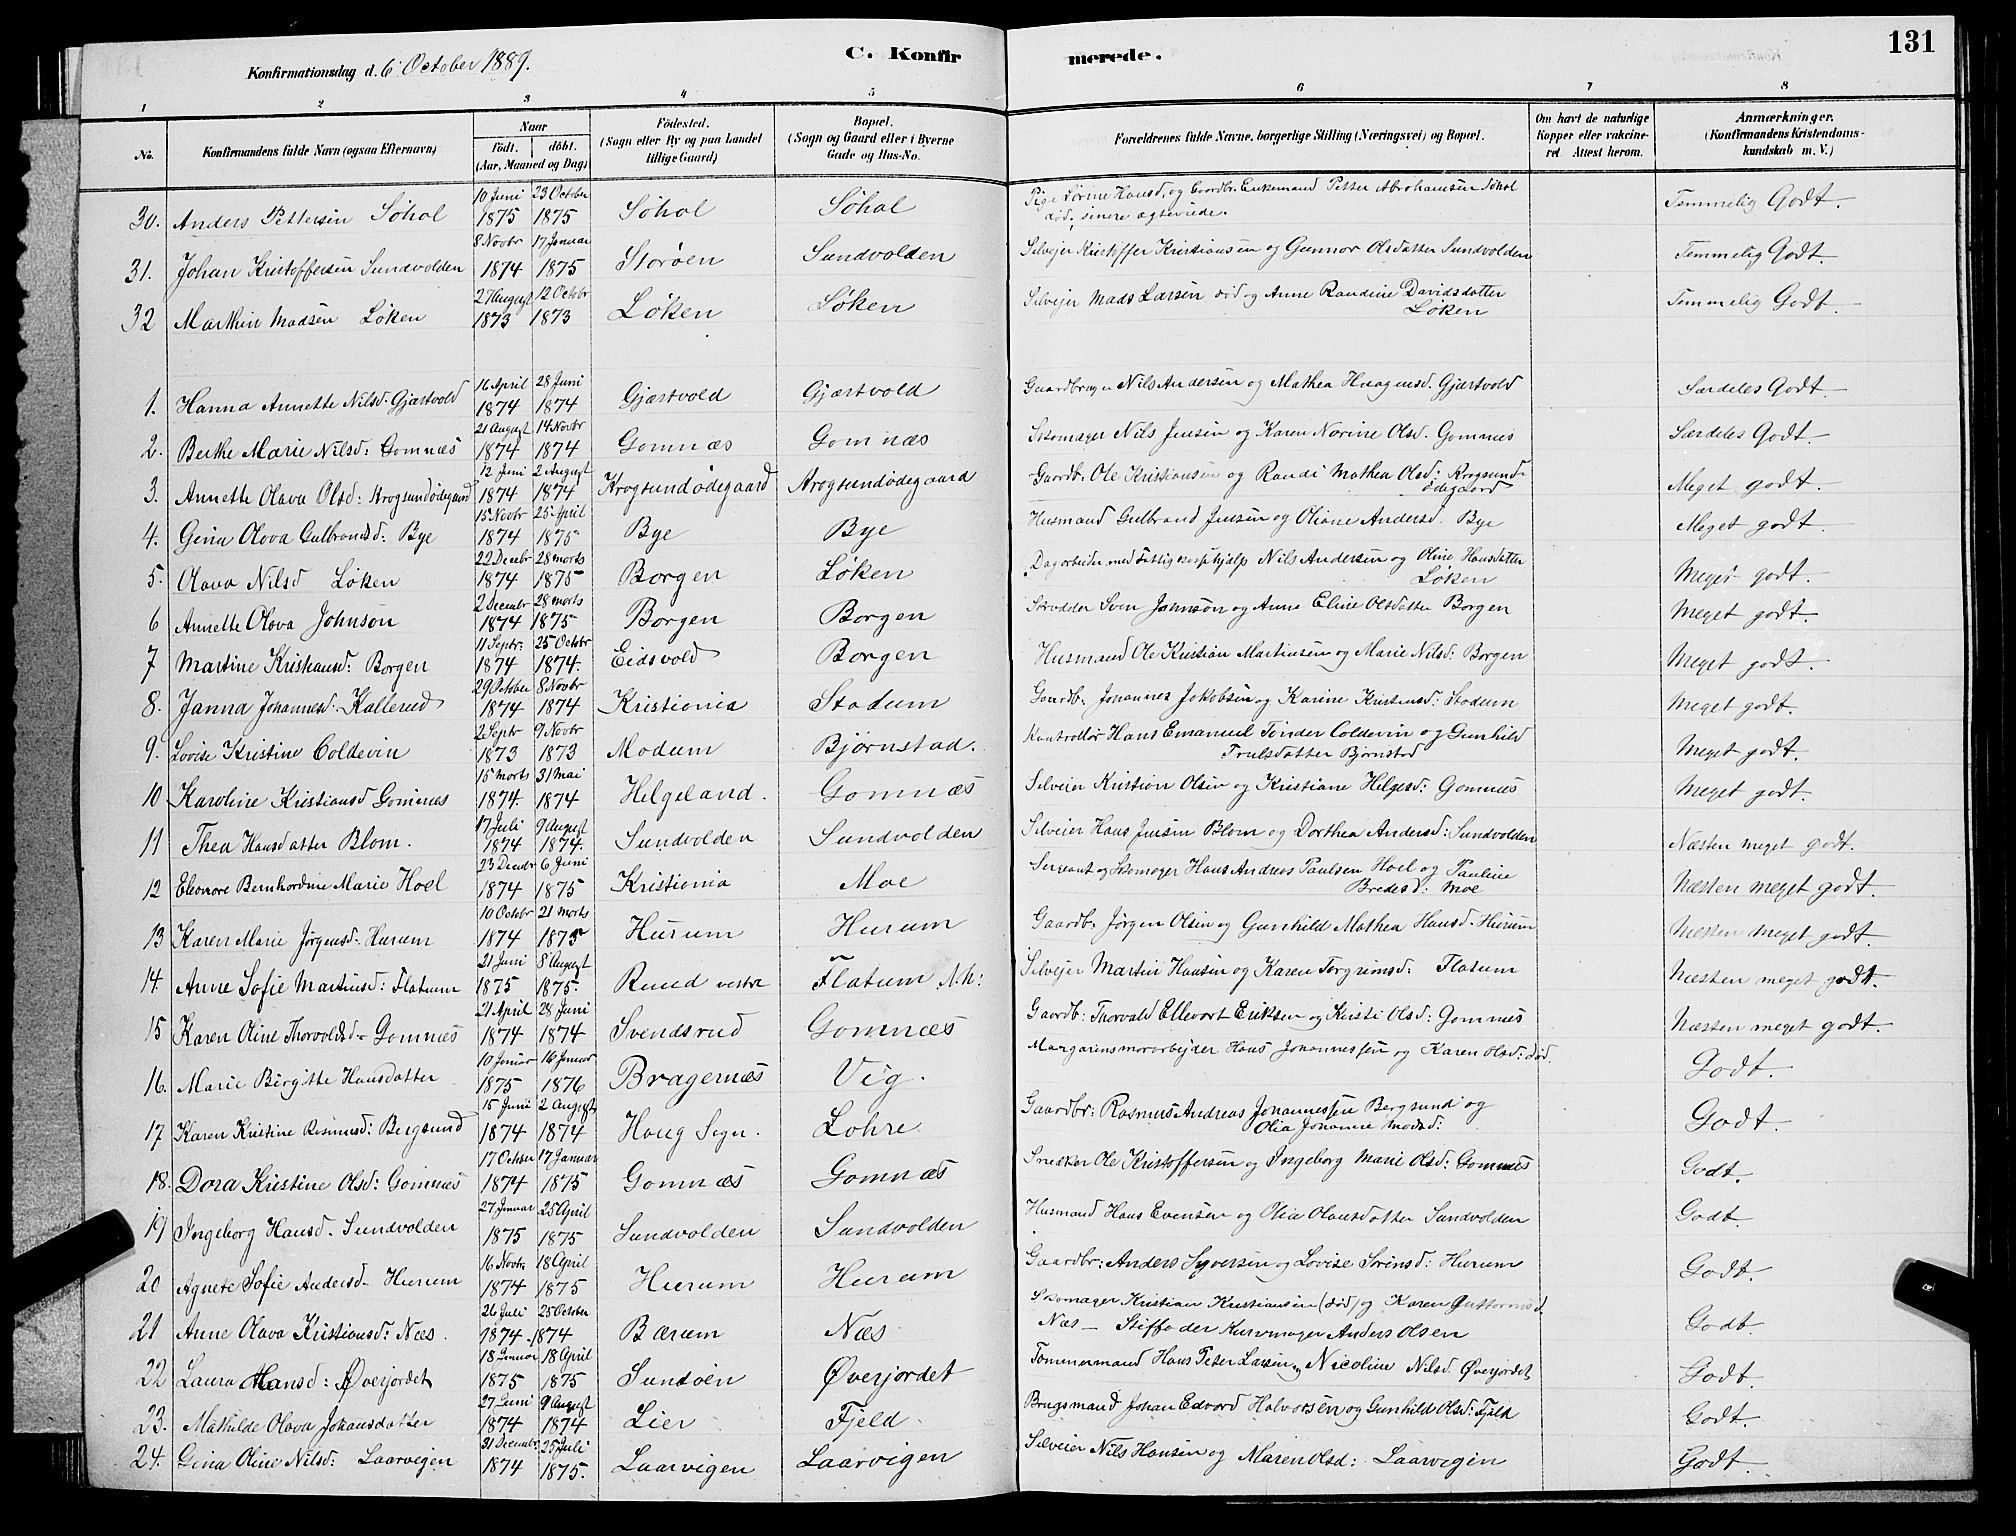 131
Konfirmationsdag d. 6 October 1889.
C. Konfirmerede.
1 2 3 4 5 6 7 8
No. Konfirmandens fulde Navn (ogsaa Efternavn) Naar Födt. döbt. (Aar, Maaned og Dag) Födested. (Sogn eller By og paa Landet tillige Gaard) Bopæl. (Sogn og Gaard eller i Byerne Gade og Hus-No. Forældrenes fulde Navne, borgerlige Stilling (Næringsvei) og Bopæl. Om havt de naturlige Kopper eller vakcineret. Attest herom. Anmærkninger. (Konfirmandens Kristendomskundskab m. V.)
30. Anders Pettersen Søhol 10 Juni 1875 23 October 1875 Søhol Søhol Pige Lorine Hansd. og Gaardbr. Enkemand Petter Abrahamsen Søhol død, senere agteviede. Temmelig Godt.
31. Johan Kristoffersen Sundvolden 8 Novbr 1874 17 Januar 1875 Storøen Sundvolden Selvejer Kristoffer Kristiansen og Gunnor Olsdatter Sundvolden Temmelig Godt.
32 Marthin Madsen Løken 27 August 1873 12 Octobr 1873 Løken Løken Selvejer Mads Larsen død og Anne Randine Davidsdatter Løken Temmelig Godt.
1. Hanna Annette Nilsd. Gjæstvold 16 April 1874 28 Juni 1874 Gjæstvold Gjæstvold Gaardbruger Nils Andersen og Mathea Haagensd. Gjæstvold Særdeles Godt.
2. Berthe Marie Nilsd: Gomnæs 21 August 1874 14 Novbr 1874 Gomnæs Gomnæs Skomager Nils Jensen og Karen Norine Olsd. Gomnæs Særdeles Godt.
3. Annette Olava Olsd: Krogsundødegaard 12 Juni 1874 2 August 1874 Krogsundødegaard Krogsundødegaard Gaardb: Ole Kristiansen og Randi Mathea Olsd: Krogsundødegaard Meget godt.
4. Gina Olava Gulbrandsd: Bye 15 Novbr 1874 25 April 1875 Bye Bye Husmand Gulbrand Jensen og Oliane Andersd. Bye Meget godt.
5. Olava Nilsd Løken 22 Decbr 1874 28 marts 1875 Borgen Løken Dagarbeider, med Fattigkassehjælp Nils Andersen og Oline Hansdatter Løken Meget godt.
6 Annette Olava Johnson 2 Decembr 1874 28 marts 1875 Borgen Borgen Skrædder Sven Johnson og Anne Eline Olsdatter Borgen Meget godt.
7 Martine Kristiansd: Borgen 11 Septr. 1874 25 Octobr 1874. Eidsvold Borgen Husmand Ole Kristian Martinsen og Marie Nilsd: Borgen Meget godt.
8. Janna Johannesd. Kallerud 29 October 1874 8 Novbr 1874 Kristiania Stadum Gaardb: Johannes Jakobsen og Karine Kristensd: Stadum Meget godt.
9. Lovise Kristine Coldevin 2 Septr 1873 9 Novbr 1873 Modum Bjørnstad. Kontrollør Hans Emanuel Tønder Coldevin og Gunhild Trulsdatter Bjørnstad Meget godt.
10 Karoline Kristiansd Gomnæs 15 marts 1874. 31 mai 1874 Helgeland. Gomnæs Selveier Kristian Olsen og Kristiane Helgesd: Gomnæs Meget godt.
11 Thea Hansdatter Blom. 17 Juli 1874 9 August 1874. Sundvolden Sundvolden Selveier Hans Jensen Blom og Dorthea Andersd: Sundvolden Næsten meget godt.
12 Eleonore Bernhardine Marie Hoel 23 Decbr 1874 6 Juni 1875 Kristiania Moe Sergeant og Skomager Hans Andreas Paulsen Hoel og Pauline Bredesd: Moe Næsten meget godt.
13 Karen Marie Jørgensd. Hurum 10 Octobr 1874 21 marts 1875 Hurum Hurum Gaardb: Jørgen Olsen og Gunhild Mathea Hansd. Hurum Næsten meget godt.
14. Anne Sofie Martinsd: Flatum 21 Juni 1875 8 August 1875. Ruud vestre Flatum N.h: Selvejer Martin Hansen og Karen Torgrimsd: Flatum Næsten meget godt.
15 Karen Oline Thorvaldsd. Gomnæs 21 April 1874 28 Juni 1874 Svendsrud Gomnæs Gaardb: Thorvald Ellevart Eriksen og Kirsti Olsd: Gomnæs Næsten meget godt.
16. Marie Birgitte Hansdatter 10 Januar 1875 16 Januar 1876 Bragernæs Vig. Margarinsmørarbejder Hans Johannessen og Karen Olsd: død. Godt.
17 Karen Kristine Rasmusd: Bergsund 15 Juni 1874 2 August 1874 Houg Sogn. Lohre Gaardbr: Rasmus Andreas Johannessen Bergsund og Olia Johanne Madsd: Godt.
18. Dora Kristine Olsd: Gomnæs 17 October 1874 17 Januar 1875 Gomnæs Gomnæs Snedker Ole Kristoffersen og Ingeborg Marie Olsd: Gomnæs Godt.
19 Ingeborg Hansd. Sundvolden 27 Januar 1875 25 April 1875 Sundvolden Sundvolden Husmand Hans Evensen og Olia Olausdatter Sundvolden Godt
20 Agnete Sofie Andersd. Hurum 16 Novbr 1874 18 April 1875 Hurum Hurum Gaardbr: Anders Syversen og Lovise Sørensd: Hurum Godt.
21 Anne Olava Kristiansd: Næs. 26 Juli 1874. 25 October 1874 Bærum Næs Skomager Kristian Kristiansen (død) og Karen Guttormsd. Næs — Stiffader Kurvmager Anders Olsen Godt.
22 Laura Hansd: Øverjordet 18 Januar 1875 18 April 1875 Sundøen Øverjordet Tømmermand Hans Peter Larsen og Nicoline Nilsd. Øverjordet Godt.
23. Mathilde Olava Johansdatter 27 Juni 1874 9 August 1874 Lier Fjeld Brugsmand Johan Edvard Halvorsen og Gunhild Olsd: Fjeld Godt.
24. Gina Oline Nilsd: Laarvigen 31 Decembr 1874 25 Juli 1875. Laarvigen Laarvigen Selveier Nils Hansen og Maren Olsd: Laarvigen Godt.